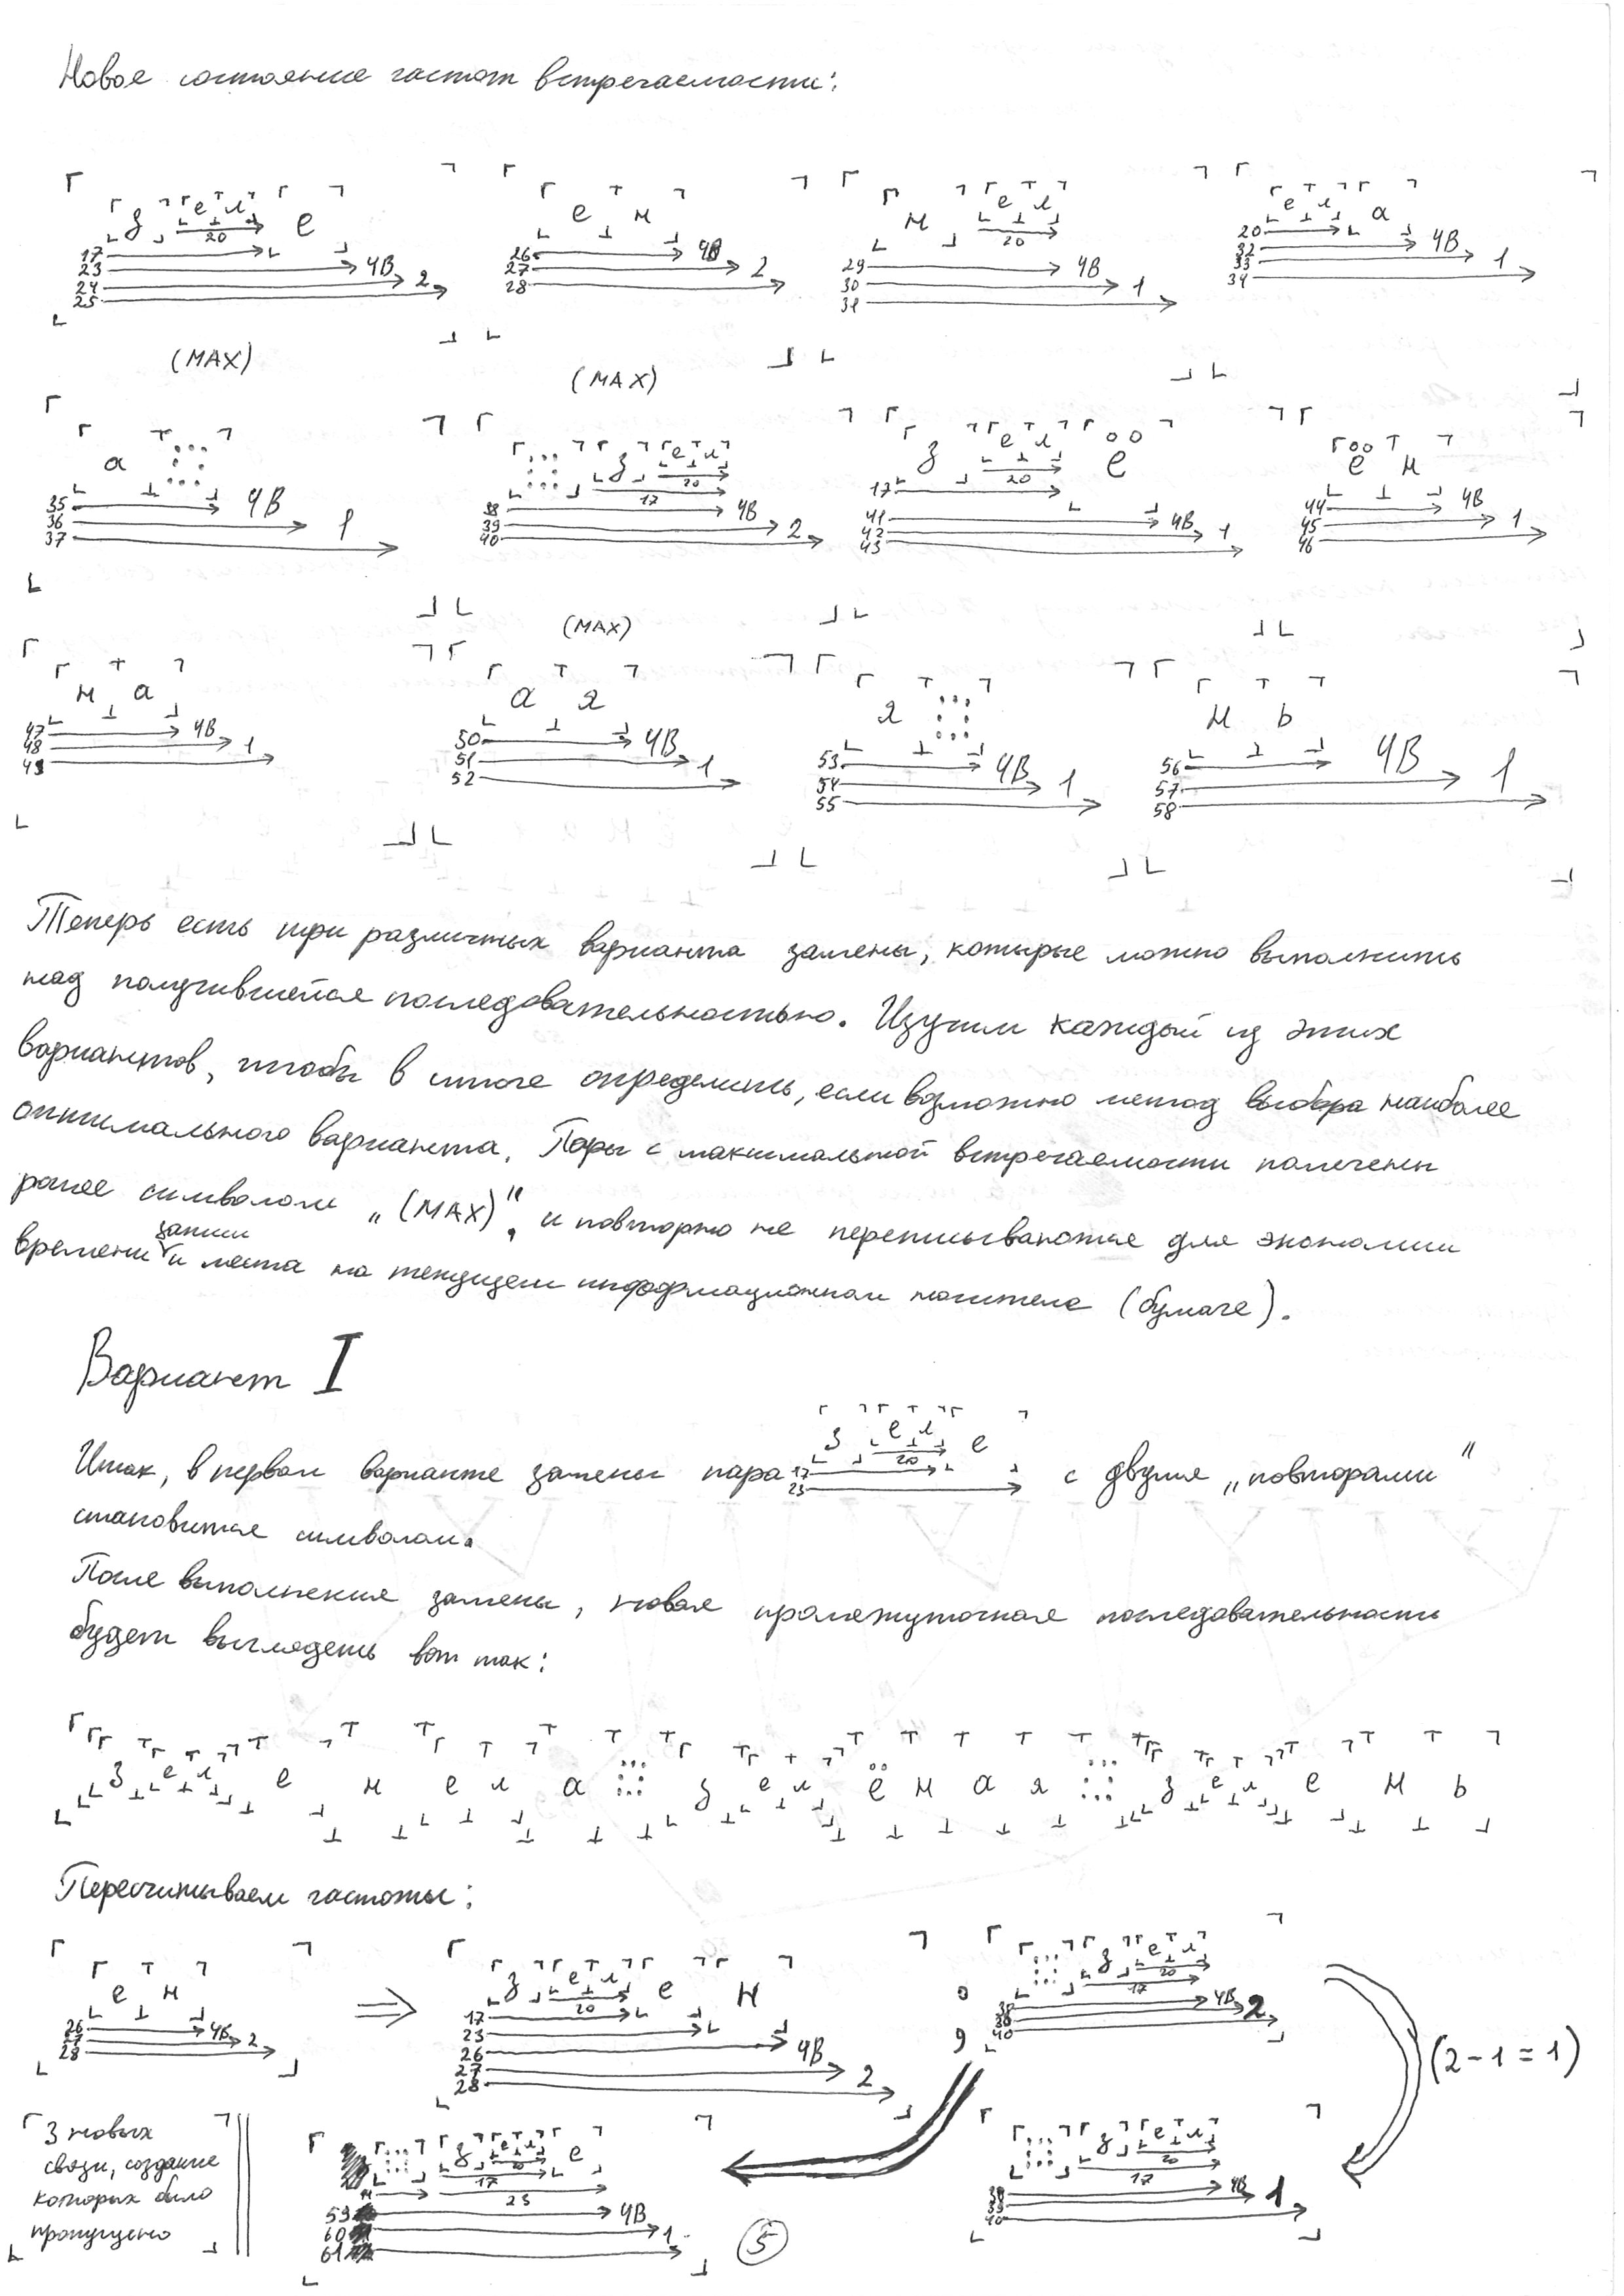 Новое состояние частот встречаемости:
з е л е е м м е л е л а
20 20 20
17 23 24 25 ЧВ 2
26 27 28 ЧВ 2
29 30 31 ЧВ 1
32 33 34 ЧВ 1
(MAX) (MAX)
а з е л з е л е е м
35 36 37 ЧВ 1
17 20 38 39 40 ЧВ 2
17 20 41 42 43 ЧВ 1
44 45 46 ЧВ 1
(MAX)
м а а я я м ь
47 48 49 ЧВ 1
50 51 52 ЧВ 1
53 54 55 ЧВ 1
56 57 58 ЧВ 1
Теперь есть три различных варианта замены, которые можно выполнить
над получившейся последовательностью. Изучим каждый из этих
вариантов, чтобы в итоге определить, если возможно метод выбора наиболее
оптимального варианта. Пары с максимальной встречаемости помечены
ранее символом „(MAX)", и повторно не переписываются для экономии
времени записи и места на текущем информационном носителе (бумаге).
Вариант I
Итак, в первом варианте замены пара з е л е 20 17 23 с двумя „повторами"
становится символом.
После выполнения замены, новая промежуточная последовательность
будет выглядеть вот так:
з е л е м е л а з е л ё м а я з е л е м ь
Пересчитываем частоты:
е м 26 27 28 ЧВ 2 ⇒ з е л е м 20 17 23 26 27 28 ЧВ 2
з е л 20 17 38 39 40 ЧВ 2
(2-1=1)
з е л 20 17 38 39 40 ЧВ 1
3 новых
связи, создание
которых было
пропущено
з е л е 20 17 23 59 60 61 ЧВ 1
5